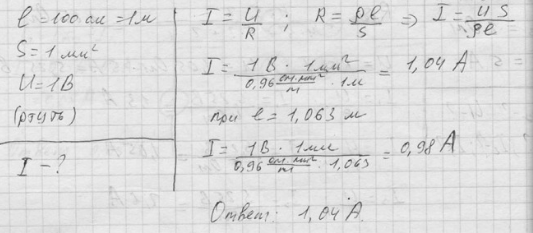 l = 100 см = 1 м
S = 1 мм²
U = 1 В
(ртуть)
I - ?
I = U/R ; R = ρl/S ⇒ I = US/ρl
I = 1 В · 1 мм² / 0,96 ом·мм²/м · 1 м = 1,04 А
при l = 1,063 м
I = 1 В · 1 мм / 0,96 ом·мм²/м · 1,063 = 0,98 А
Ответ: 1,04 А.